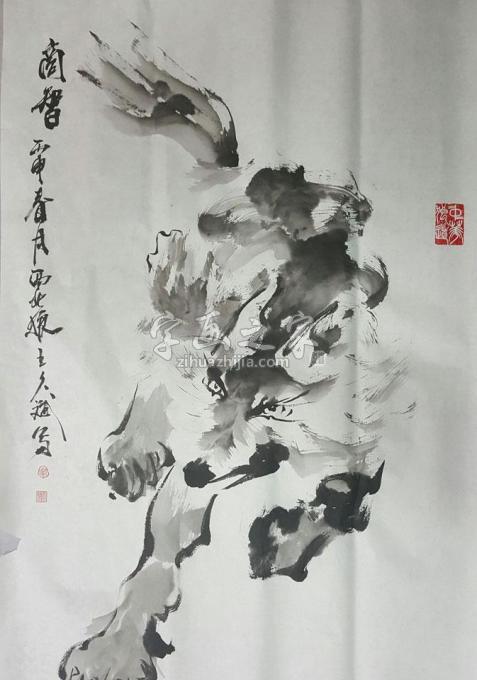 商智
丙申春月西北狼王久斌写
字画之家
zihuazhijia.com